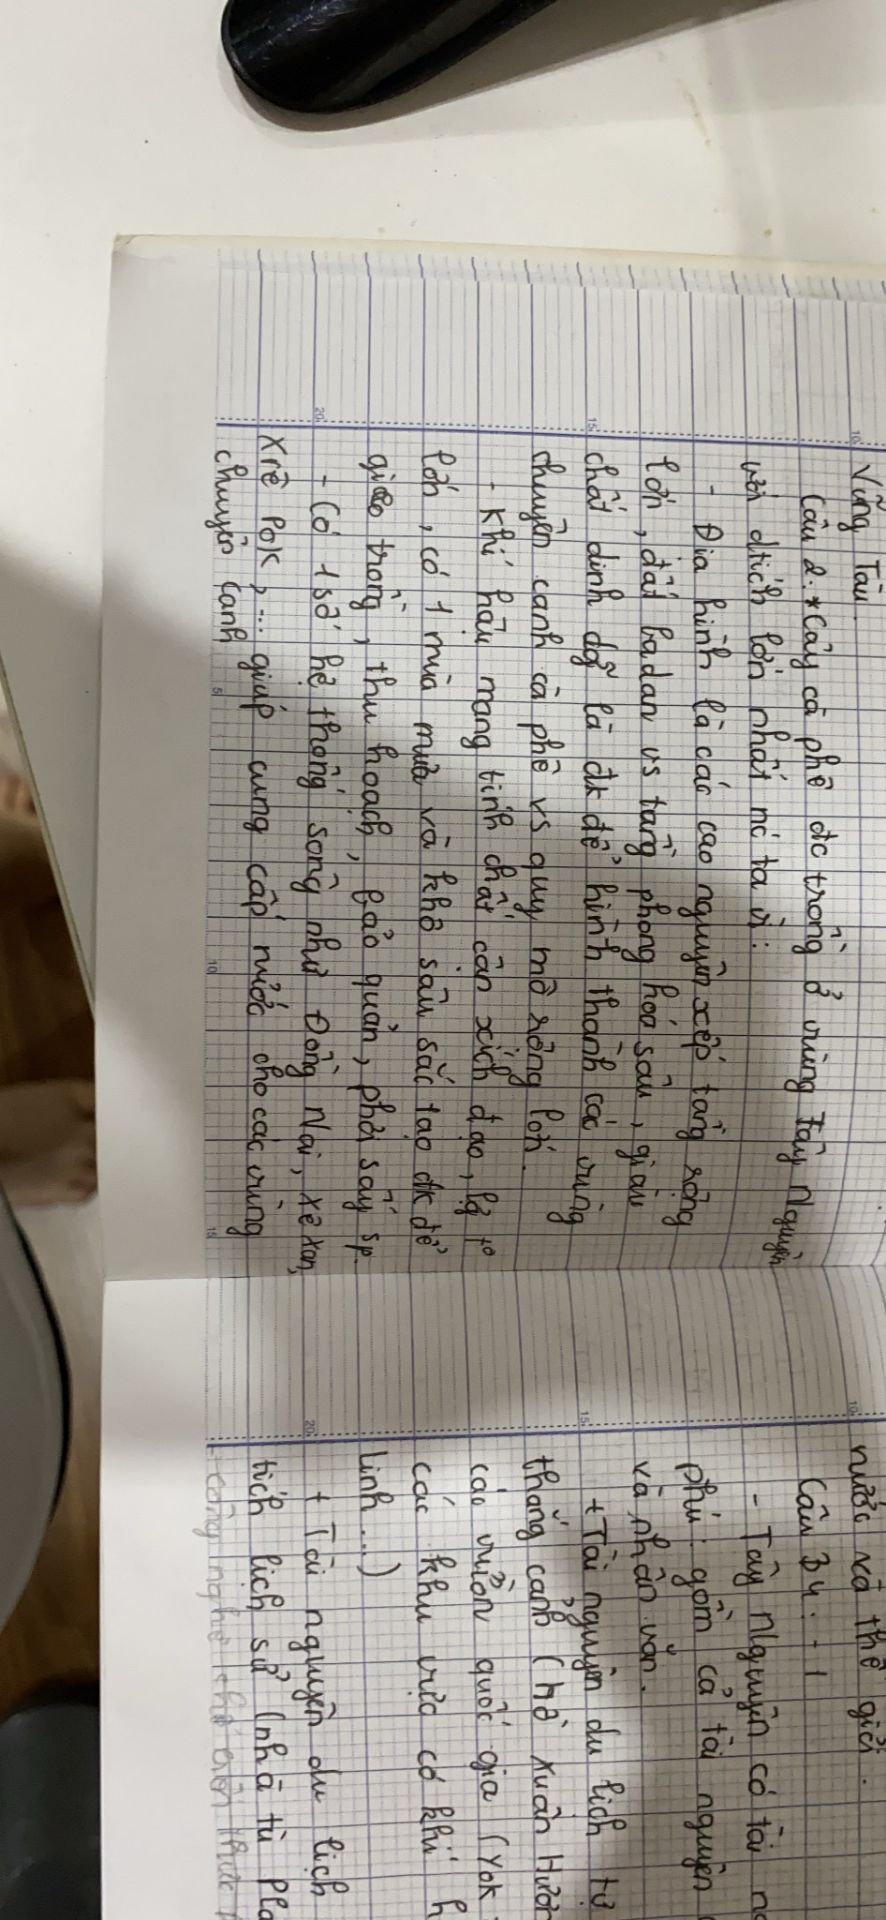 Vũng Tàu
Câu 2: * Cây cà phê đc trồng ở vùng Tây Nguyên
với dtích lớn nhất nc ta vì:
- Địa hình là các cao nguyên xếp tầng rộng
lớn, đất badan vs tầng phong hoá sâu, giàu
chất dinh dg̃ là đk để hình thành các vùng
chuyên canh cà phê vs quy mô rộng lớn.
- Khí hậu mang tính chất cận xích đạo, lg t°
lớn, có 1 mùa mưa và khô sâu sắc tạo đk để
gieo trồng, thu hoạch, bảo quản, phơi sấy sp.
- Có 1 số hệ thống sông như Đồng Nai, Xê Xan,
Xrê Pok,... giúp cung cấp nước cho các vùng
chuyên canh
nước và thế giới.
Câu 34: - 1
- Tây Nguyên có tài
phú: gồm cả tài nguyên
và nhân văn.
+ Tài nguyên du lịch tự
thắng cảnh (hồ Xuân Hươn
các vườn quốc gia (Yok
các khu vực có khí h
Linh...)
+ Tài nguyên du lịch
tích lịch sử (nhà tù Ple